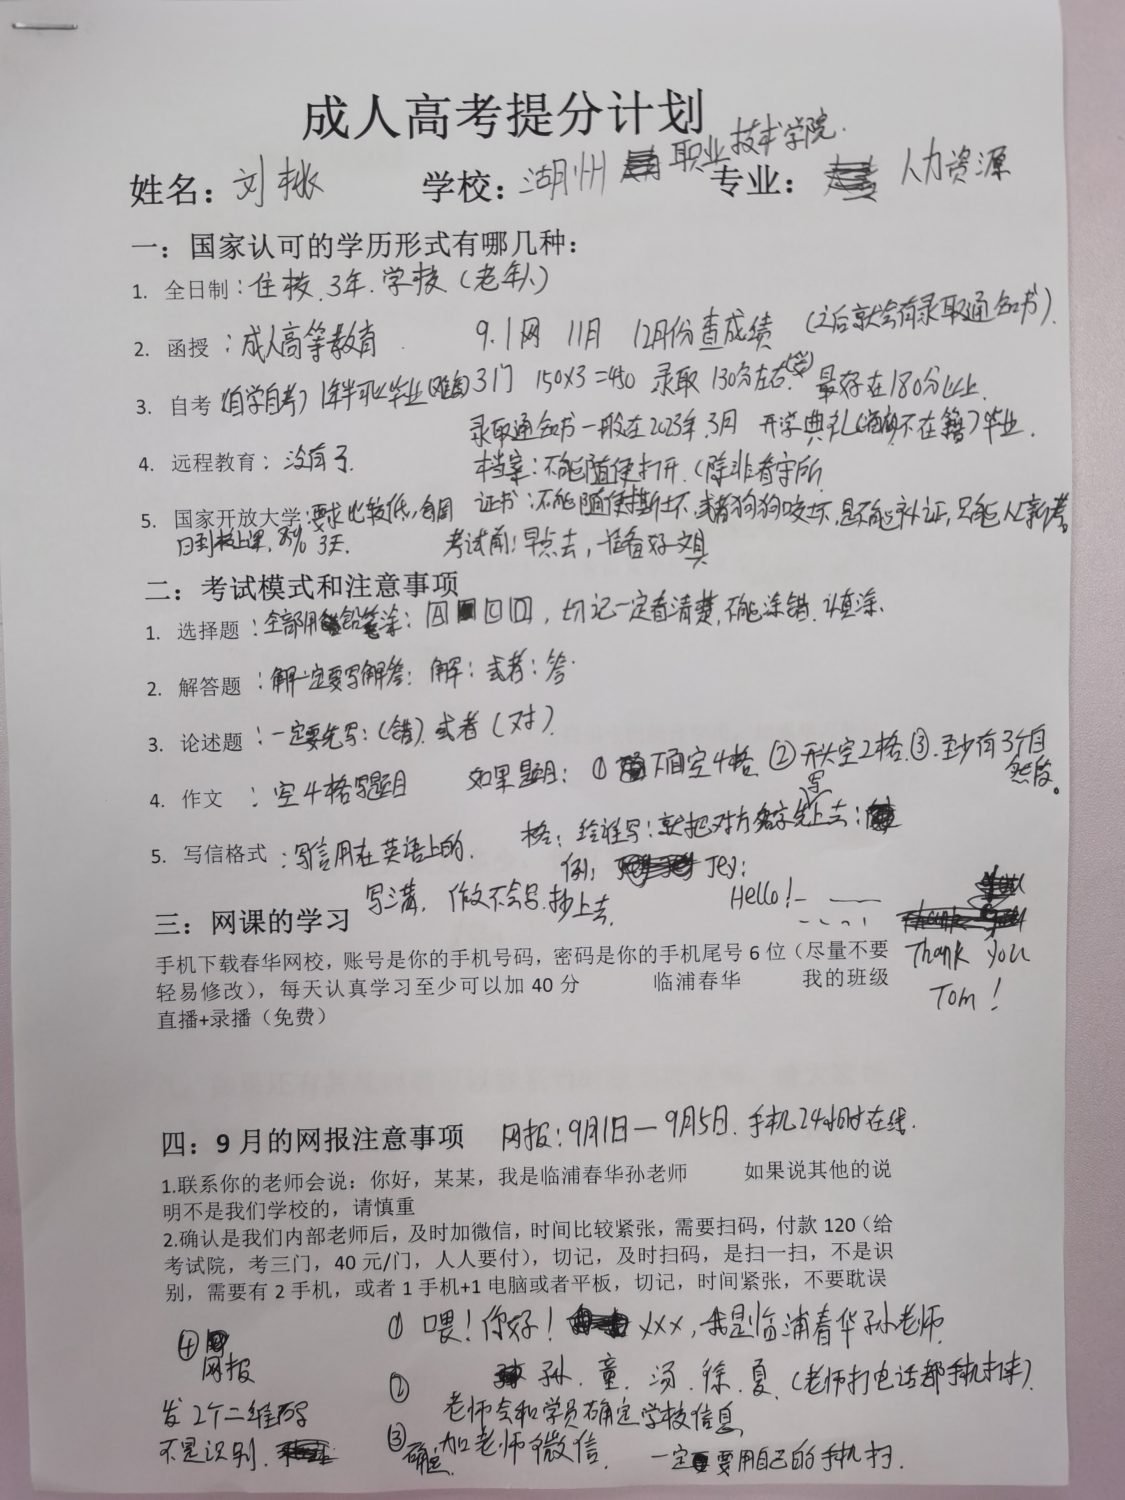 成人高考提分计划
姓名：刘桃 学校：湖州 职业技术学院. 专业： 人力资源
一：国家认可的学历形式有哪几种：
1. 全日制：住校.3年.学校（老年人）
2. 函授：成人高等教育 9.1网 11月 12月份查成绩 （之后就会有录取通知书）.
3. 自考（自学自考）1年半可以毕业 3门 150X3=450 录取 130分左右. 最好在180分以上.
录取通知书一般在2023年.3月 开学典礼 不在籍）毕业.
4. 远程教育：没有了. 档案：不能随便打开.（除非看守所
5. 国家开放大学：要求比较低, 证书：不能随便撕坏,或者狗狗咬坏,是不能补证,只能人工新考.
日到校上课, 3天. 考试前：早点去，准备好文具
二：考试模式和注意事项
1. 选择题：全部用铅笔涂：A C D，切记一定看清楚,不能涂错.认真涂.
2. 解答题：解一定要写解答：解：或者：答.
3. 论述题：一定要先写：（错）.或者（对）.
4. 作文：空4格写题目 如果题目：① 下面空4格 ②开头空2格.③.至少有3个自然段。
5. 写信格式：写信用在英语上的. 格：给谁写：就把对方名字先写上去：
例： Jey：
写满，作文不会写.抄上去. Hello！
三：网课的学习
手机下载春华网校，账号是你的手机号码，密码是你的手机尾号6位（尽量不要
轻易修改），每天认真学习至少可以加40分 临浦春华 我的班级
直播+录播（免费）
Thank you
Tom！
四：9月的网报注意事项 网报：9月1日—9月5日.手机24小时在线.
1.联系你的老师会说：你好，某某，我是临浦春华孙老师 如果说其他的说
明不是我们学校的，请慎重
2.确认是我们内部老师后，及时加微信，时间比较紧张，需要扫码，付款120（给
考试院，考三门，40元/门，人人要付），切记，及时扫码，是扫一扫，不是识
别，需要有2手机，或者1手机+1电脑或者平板，切记，时间紧张，不要耽误
① 喂！你好！ XXX，我是临浦春华孙老师.
② 孙.童.汤.徐.夏.（老师打电话都手机打来）.
老师会和学员确定学校信息
③ 确定加老师微信. 一定要用自己的手机扫.
④
网报
发2个二维码
不是识别.